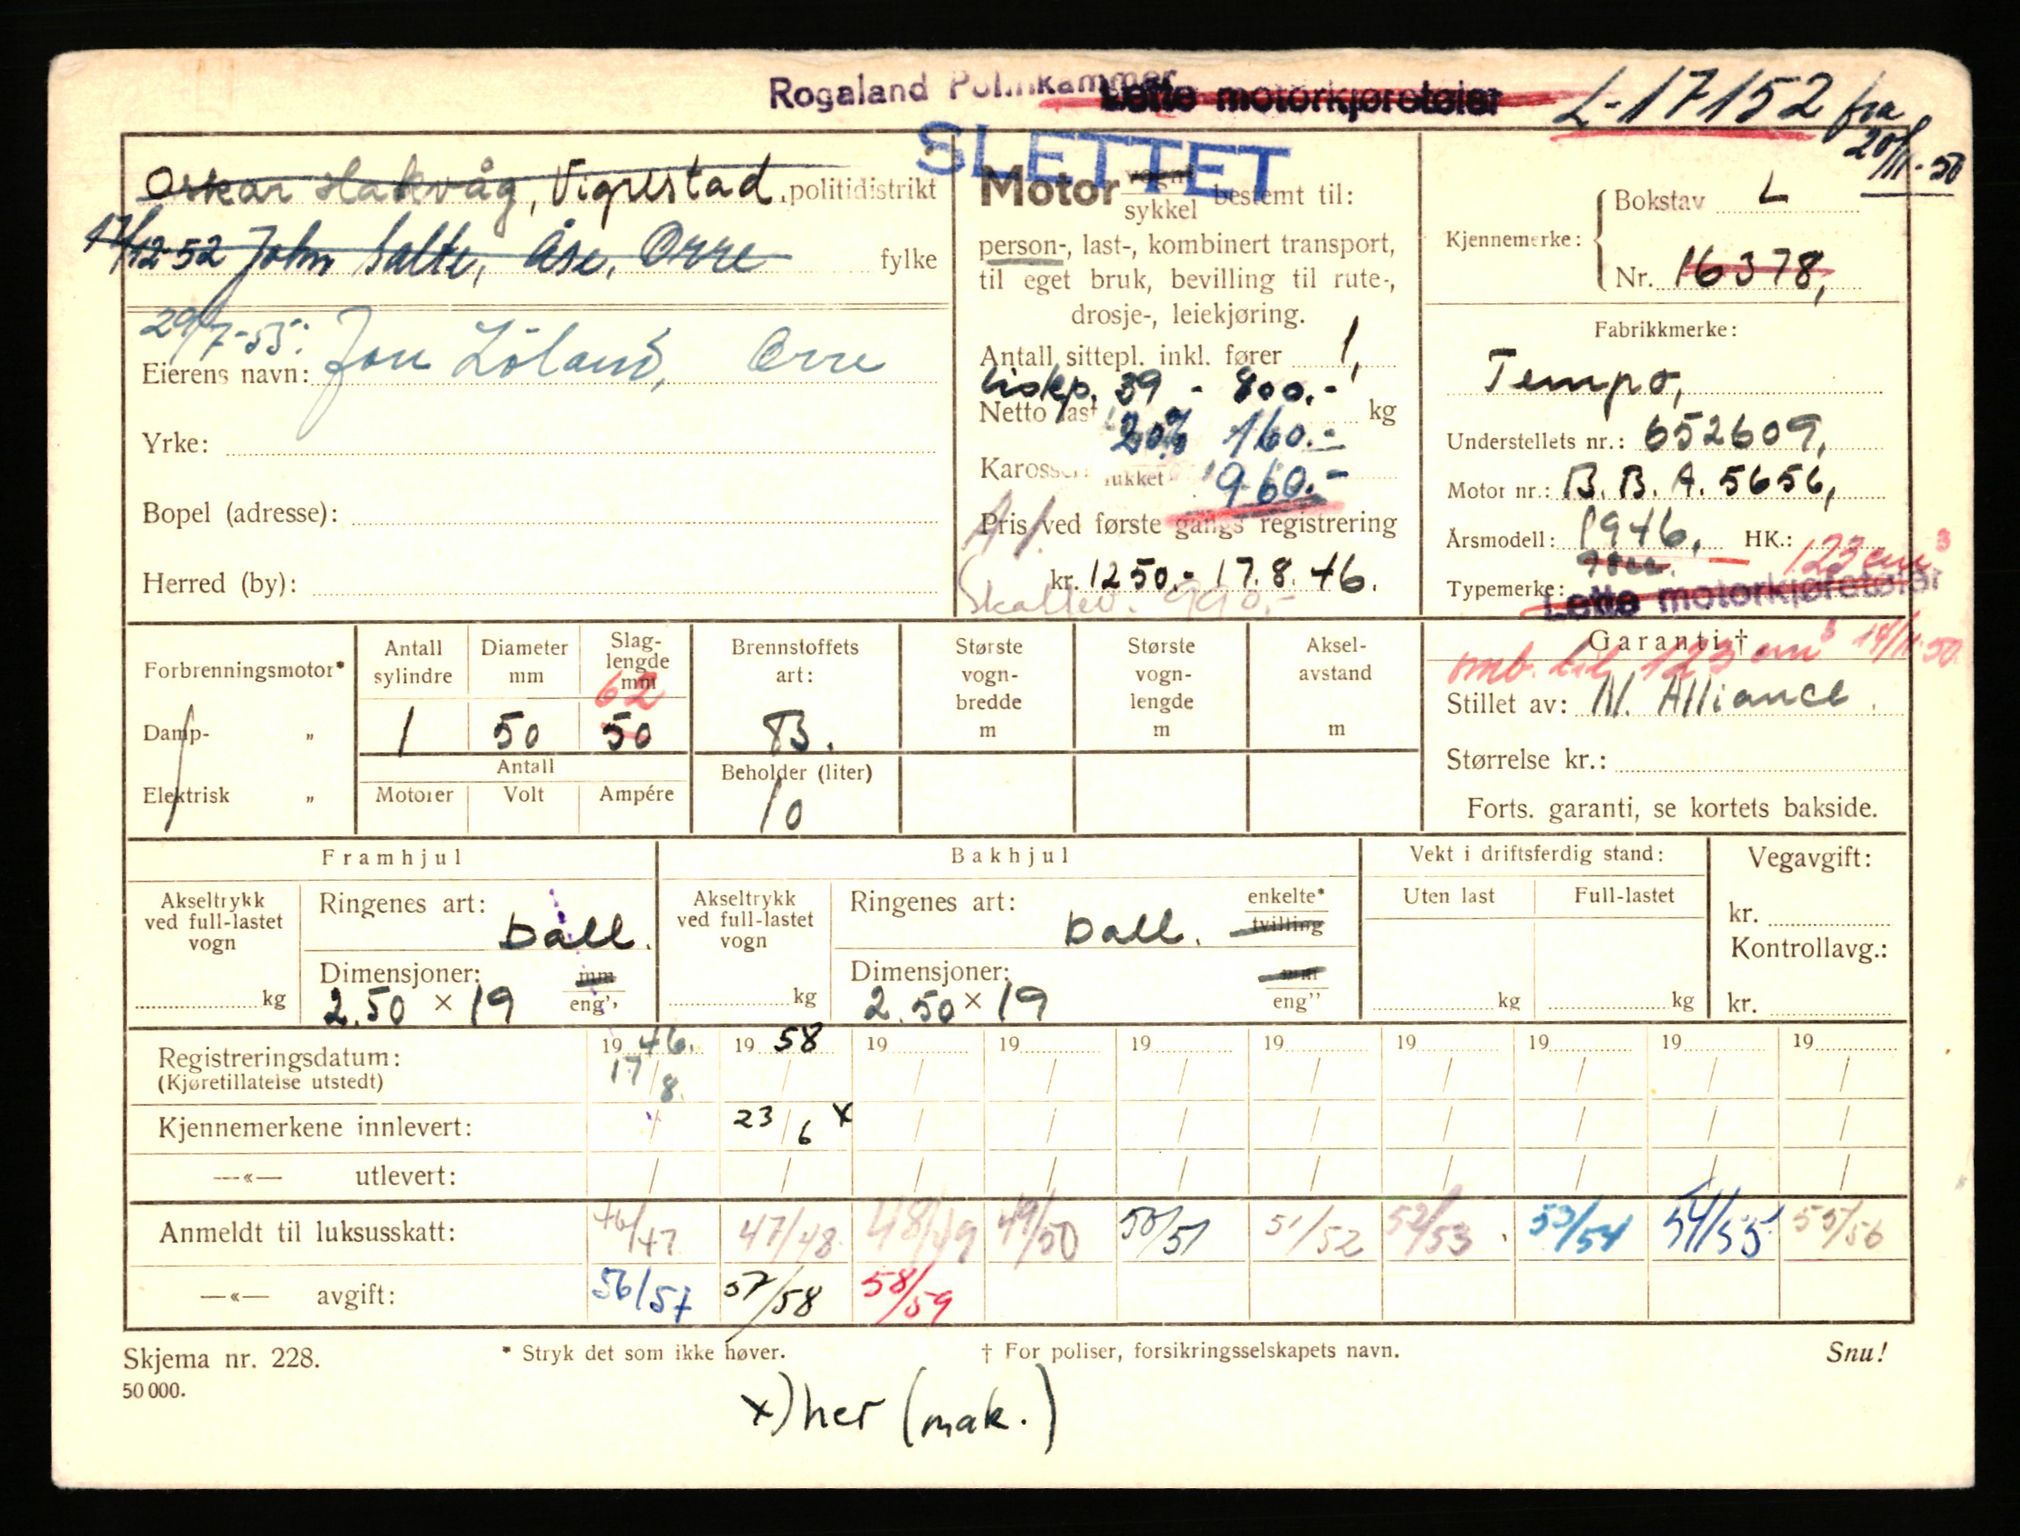 Rogaland Politikammer
Lette motorkjøretøier
L-17152 fra
20/11-50
SLETTET
Oskar Hakvåg, Vigrestad. politidistrikt
17/12-52 John Salte, Åse, Orre fylke
29/7-55:
Eierens navn: Jon Löland, Orre
Yrke:
Bopel (adresse):
Herred (by):
Motor vogn sykkel bestemt til:
person-, last-, kombinert transport,
til eget bruk, bevilling til rute-,
drosje-, leiekjøring.
Antall sittepl. inkl. fører 1,
Liskp. 39 - 800.-
Netto last kg
20% 160.-
Karosseri lukket 960.-
A/.
Pris ved første gangs registrering
kr. 1250.- 17.8.46.
Skattev. 990.-
Kjennemerke: Bokstav L
Nr. 16378,
Fabrikkmerke:
Tempo,
Understellets nr.: 652609,
Motor nr.: B. B. A. 5656,
Årsmodell: 1946, HK.:
123 cm³
Typemerke:
Lette motorkjøretøier
Garanti †
omb. til 123 cm³ 18/11-50
Stillet av: N. Alliance.
Størrelse kr.:
Forts. garanti, se kortets bakside.
Forbrenningsmotor*
Damp- „
Elektrisk „
Antall sylindre
1
Diameter mm
50
Slag-lengde mm
62
50
Antall
Motorer Volt Ampére
Brennstoffets art:
B.
Beholder (liter)
10
Største vogn-bredde m
Største vogn-lengde m
Aksel-avstand m
Framhjul
Akseltrykk ved full-lastet vogn
kg
Ringenes art:
ball.
Dimensjoner: mm
2.50 × 19 eng''
Bakhjul
Akseltrykk ved full-lastet vogn
kg
Ringenes art: enkelte* tvilling
ball.
Dimensjoner: mm
2.50 × 19 eng''
Vekt i driftsferdig stand:
Uten last Full-lastet
kg kg
Vegavgift:
kr.
Kontrollavg.:
kr.
Registreringsdatum: 19 46. 19 58 19 19 19 19 19 19 19 19
(Kjøretillatelse utstedt) 17/8. / / / / / / / / /
Kjennemerkene innlevert: / 23/6 x / / / / / / / /
—«— utlevert: / / / / / / / / / /
Anmeldt til luksusskatt: 46/47 47/48 48/49 49/50 50/51 51/52 52/53. 53/54 54/55 55/56
—«— avgift: 56/57 57/58 58/59
Skjema nr. 228.
50 000.
* Stryk det som ikke høver.
† For poliser, forsikringsselskapets navn.
Snu!
x) her (mak.)